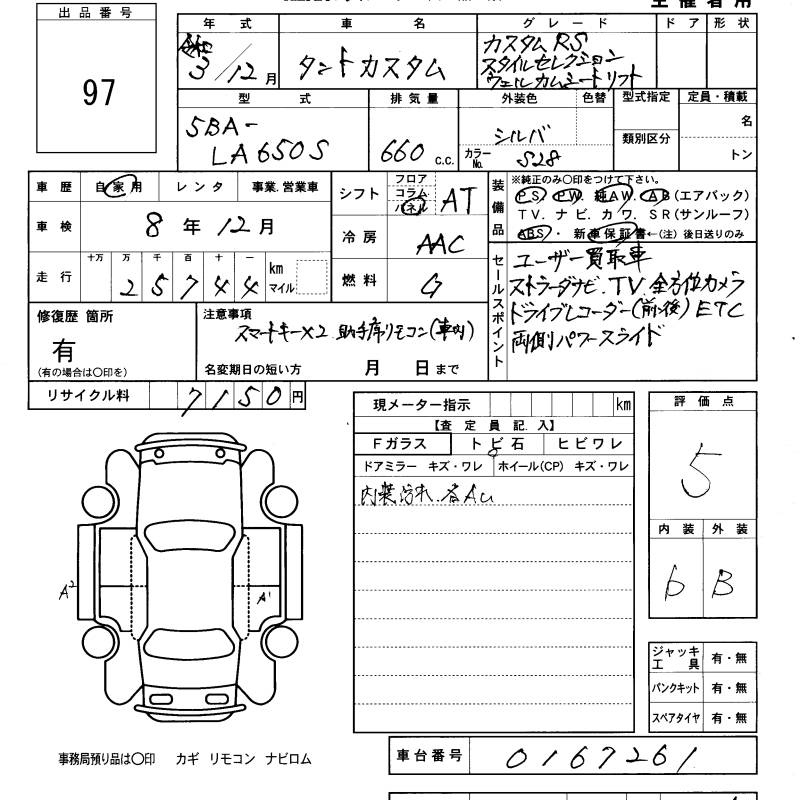 出品番号
97
年式 車名 グレード ドア 形状
3/12月
タントカスタム
カスタムRS
スタイルセレクション
ウェルカムシートリフト
型式 排気量 外装色 色替 型式指定 定員・積載
5BA-
LA650S
660 c.c.
シルバ
カラーNo. S28
類別区分
名
トン
車歴 自家用 レンタ 事業.営業車
車検 8年12月
走行 十万 万 千 百 十 一
25744 km マイル
シフト フロア コラム パネル AT
冷房 AAC
燃料 G
装備品
※純正のみ〇印をつけて下さい。
PS. PW. 純AW. AB(エアバック)
TV. ナビ. カワ. SR(サンルーフ)
ABS. 新車保証書←(注)後日送りのみ
セールスポイント
ユーザー買取車
ストラーダナビ.TV 全方位カメラ
ドライブレコーダー(前後) ETC
両側パワースライド
修復歴 箇所
有
(有の場合は〇印を)
注意事項
スマートキー×2 助手席リモコン(車内)
名変期日の短い方 月 日まで
リサイクル料 7150円
現メーター指示 km
【査定員記入】
Fガラス トビ石 ヒビワレ
ドアミラー キズ・ワレ ホイール(CP) キズ・ワレ
内装汚れ. 各AU
評価点
5
内装 外装
b B
A2
A1
ジャッキ工具 有・無
パンクキット 有・無
スペアタイヤ 有・無
事務局預り品は〇印 カギ リモコン ナビロム
車台番号 0167261